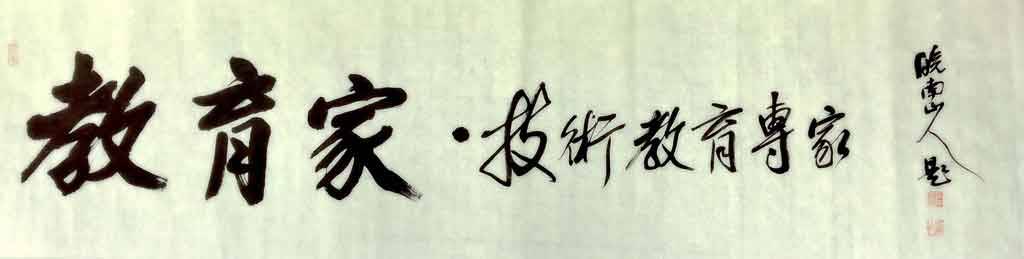 教育家·技術教育專家
皖南山人題